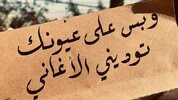 وبس على عيونك
توديني الأغاني